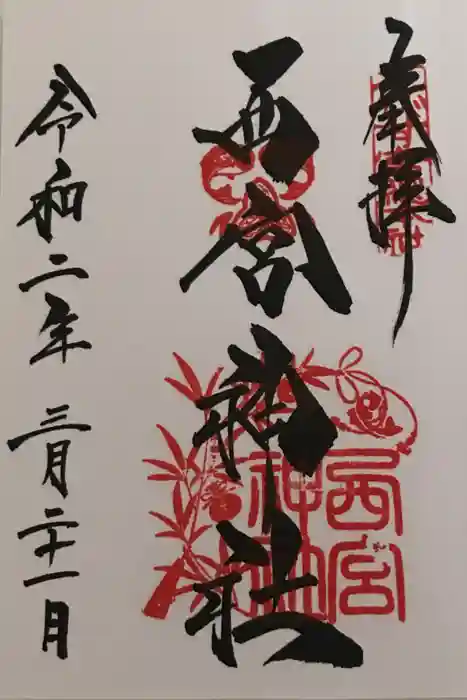 奉拝
西宮神社
西宮
神社
令和二年 三月二十一日